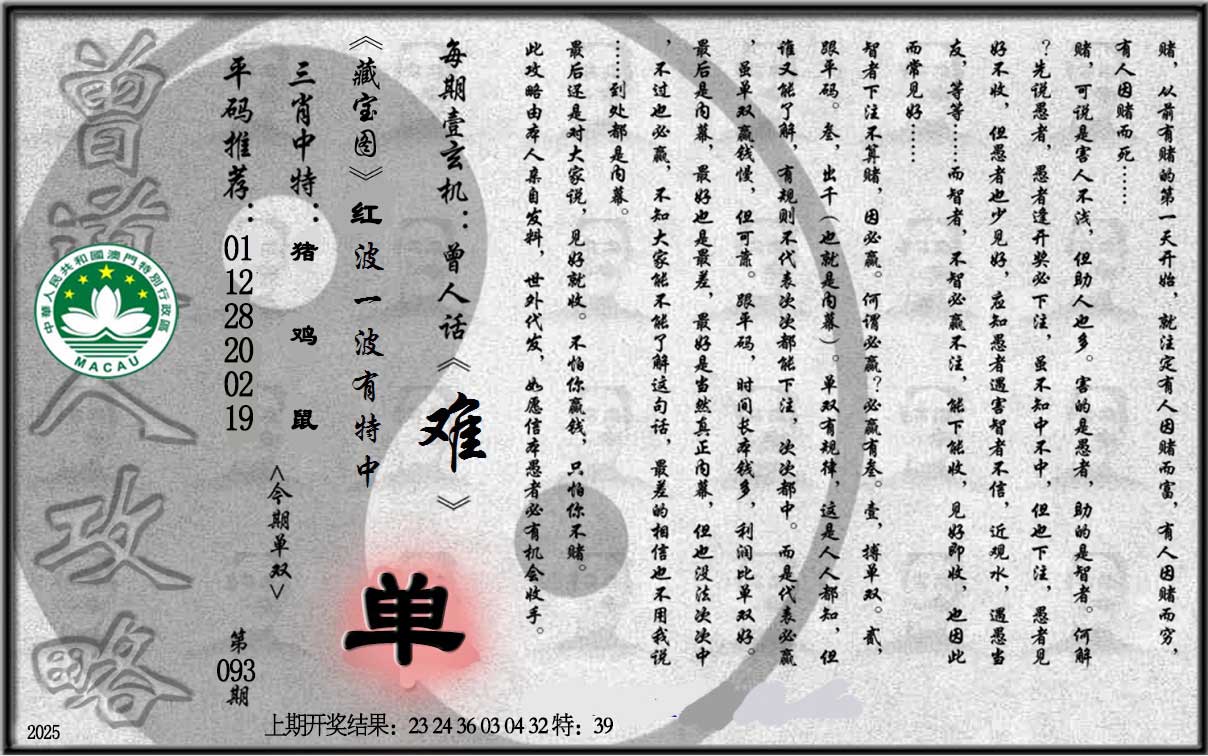 赌，从前有赌的第一天开始，就注定有人因赌而富，有人因赌而穷，
有人因赌而死……
赌，可说是害人不浅，但助人也多。害的是愚者，助的是智者。何解
？先说愚者，愚者逢开奖必下注，虽不知中不中，但也下注，愚者见
好不收，但愚者也少见好，应知愚者遇害智者不信，近观水，遇愚当
友，等等……而智者，不智必赢不注，能下能收，见好即收，也因此
而常见好……
智者下注不算赌，因必赢。何谓必赢？必赢有叁。壹，搏单双。贰，
跟平码。叁，出千（也就是内幕）。单双有规律，这是人人都知，但
谁又能了解，有规则不代表次次都能下注，次次都中。而是代表必赢
，虽单双赢钱慢，但可靠。跟平码，时间长本钱多，利润比单双好。
最后是内幕，最好也是最差，最好是当然真正内幕，但也没法次次中
，不过也必赢，不知大家能不能了解这句话，最差的相信也不用我说
……到处都是内幕。
最后还是对大家说，见好就收。不怕你赢钱，只怕你不赌。
此攻略由本人亲自发料，世外代发，如愿信本愚者必有机会收手。
每期壹玄机：曾人话《难》
《藏宝图》红波一波有特中
单
三肖中特：猪 鸡 鼠
<今期单双>
平码推荐：01 12 28 20 02 19
第093期
曾道人攻略
中華人民共和國澳門特別行政區
MACAU
2025
上期开奖结果：23 24 36 03 04 32 特：39